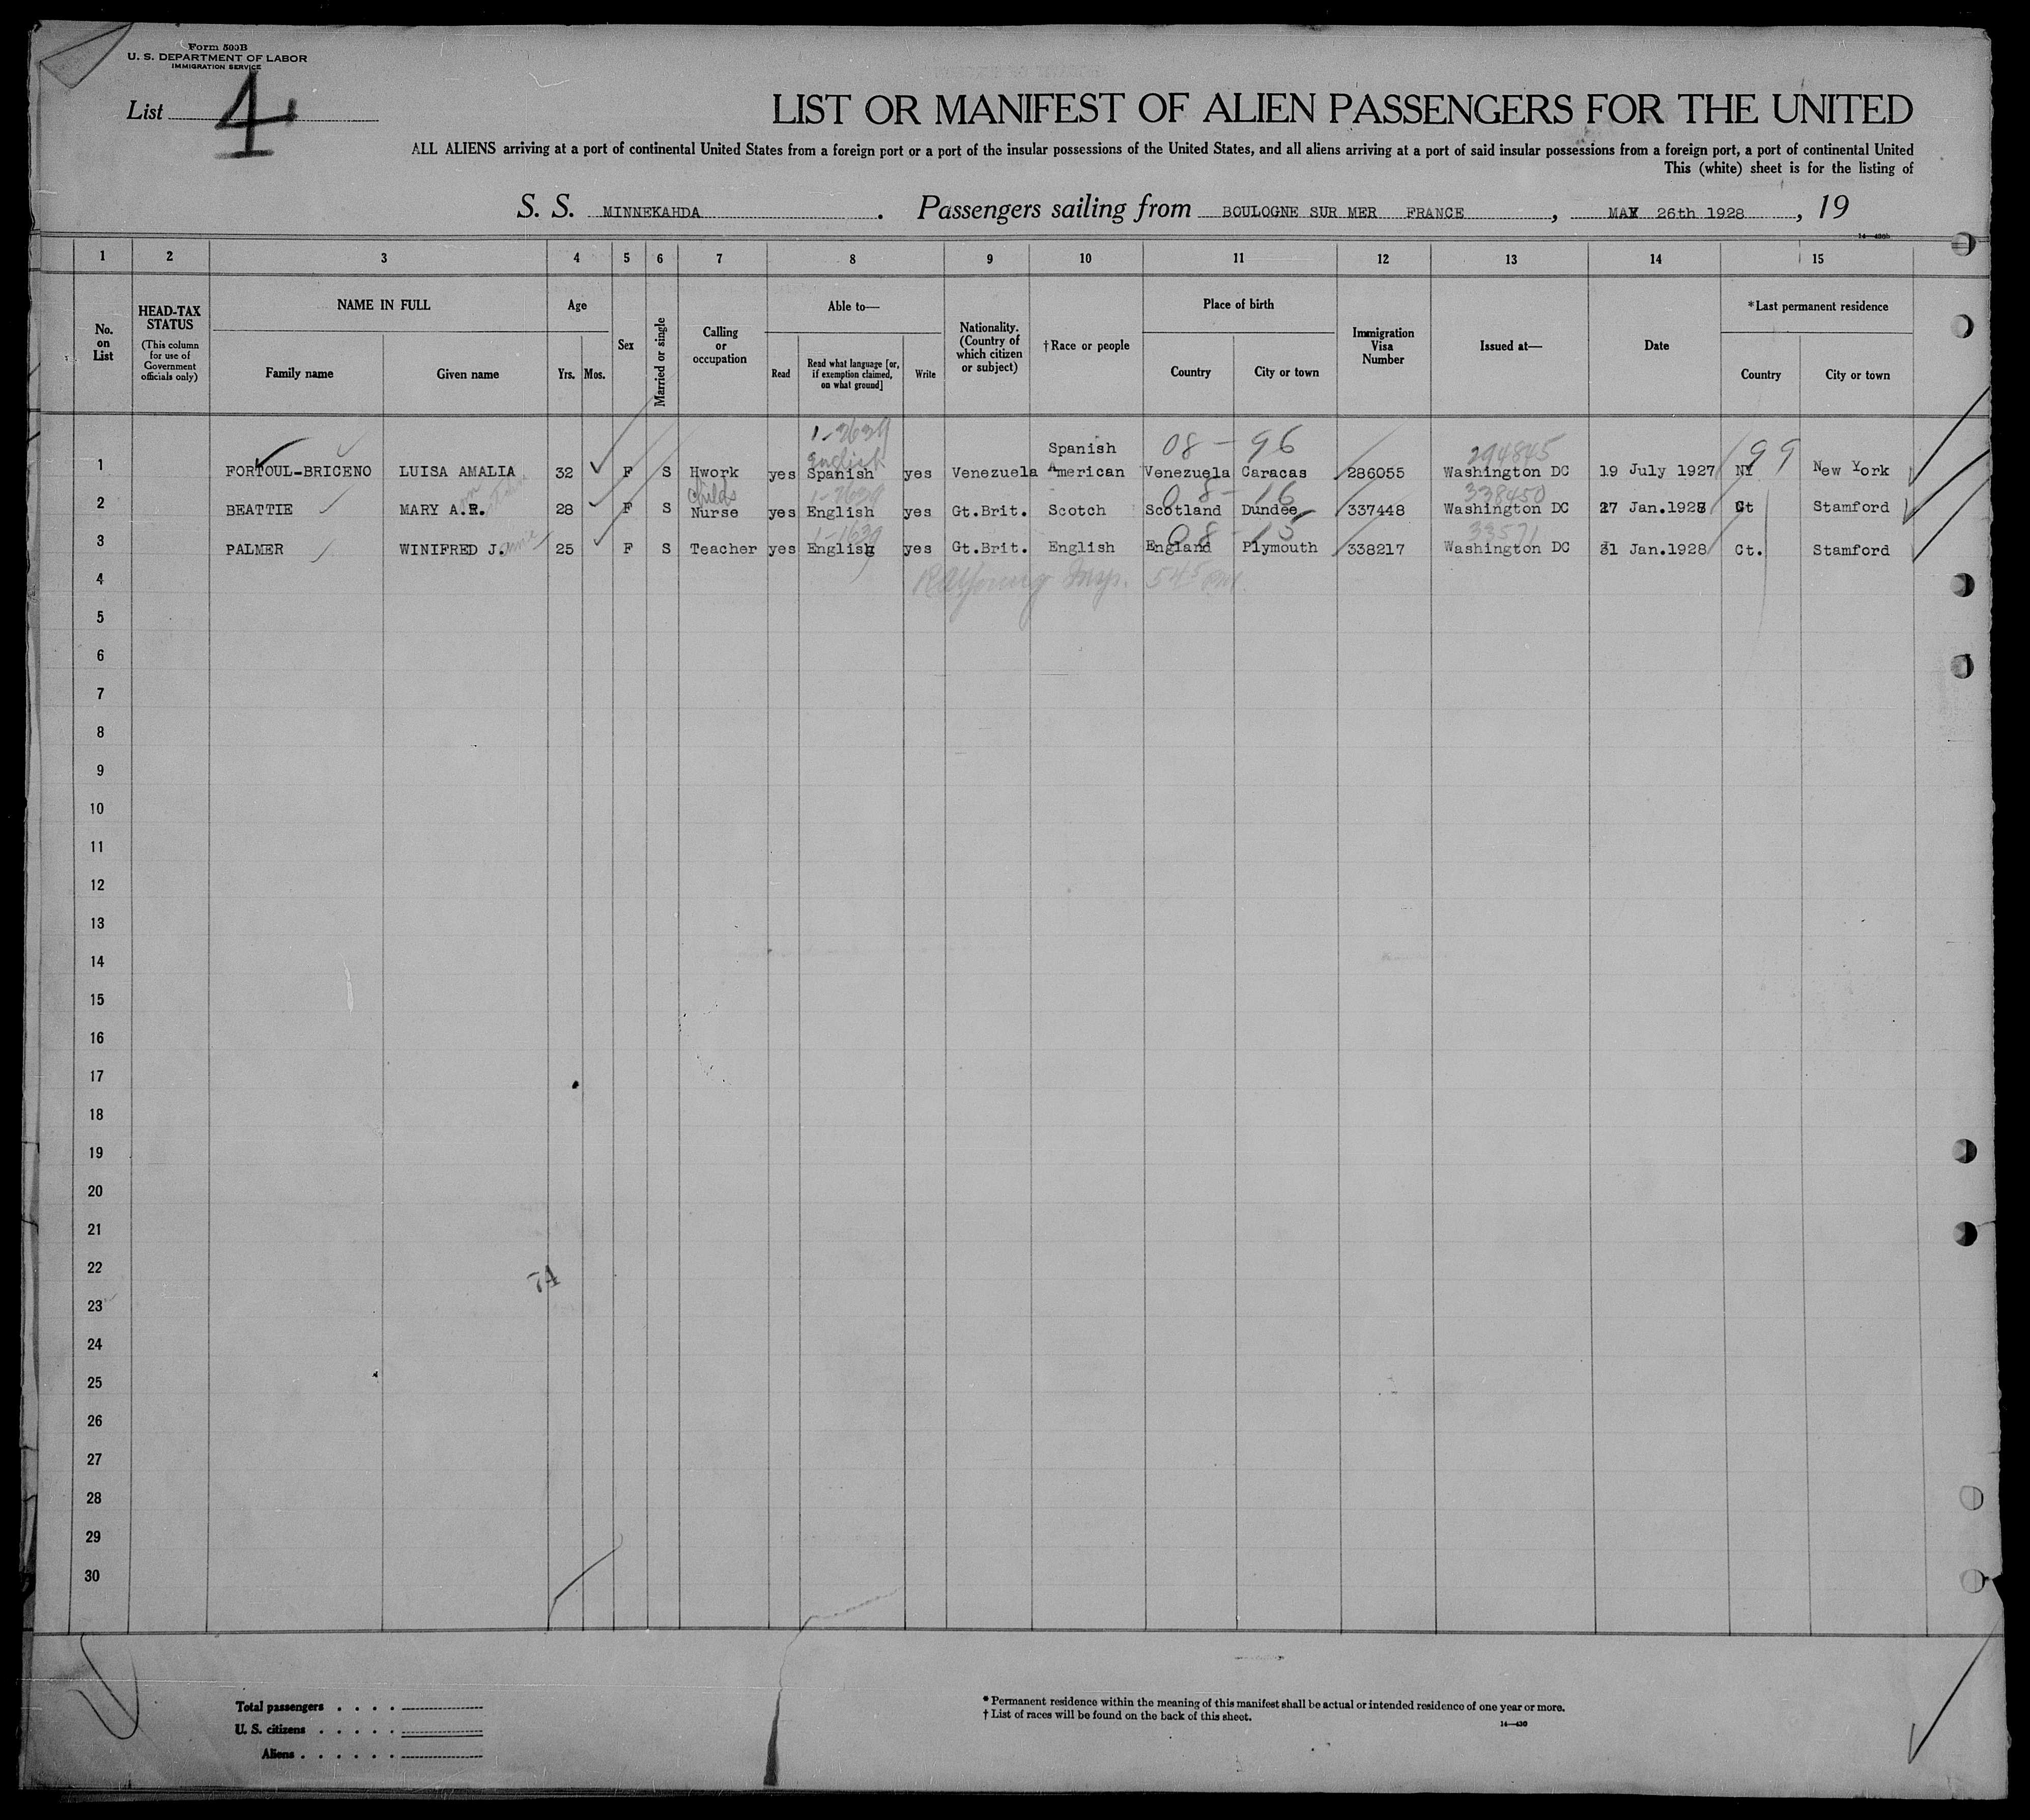 Form 500B
U. S. DEPARTMENT OF LABOR
IMMIGRATION SERVICE
List 4
LIST OR MANIFEST OF ALIEN PASSENGERS FOR THE UNITED
ALL ALIENS arriving at a port of continental United States from a foreign port or a port of the insular possessions of the United States, and all aliens arriving at a port of said insular possessions from a foreign port, a port of continental United
This (white) sheet is for the listing of
S. S. MINNEKAHDA . Passengers sailing from BOULOGNE SUR MER FRANCE , MAY 26th 1928 , 19
1 2 3 4 5 6 7 8 9 10 11 12 13 14 15
No. on List
HEAD-TAX STATUS (This column for use of Government officials only)
NAME IN FULL
Family name Given name
Age
Yrs. Mos.
Sex
Married or single
Calling or occupation
Able to—
Read Read what language [or, if exemption claimed, on what ground] Write
Nationality. (Country of which citizen or subject)
†Race or people
Place of birth
Country City or town
Immigration Visa Number
Issued at—
Date
*Last permanent residence
Country City or town
1-2639 Spanish 08 - 96 294845 99
English
1 FORTOUL-BRICENO LUISA AMALIA 32 F S Hwork yes Spanish yes Venezuela American Venezuela Caracas 286055 Washington DC 19 July 1927 NY New York
Childs 1-2639 08 - 16 338450
2 BEATTIE MARY A.R. 28 F S Nurse yes English yes Gt.Brit. Scotch Scotland Dundee 337448 Washington DC 27 Jan.1928 Ct Stamford
1-1639 08 - 15 33571
3 PALMER WINIFRED J. 25 F S Teacher yes English yes Gt.Brit. English England Plymouth 338217 Washington DC 31 Jan.1928 Ct. Stamford
4 Insp. 545 PM
5
6
7
8
9
10
11
12
13
14
15
16
17
18
19
20
21
22
74
23
24
25
26
27
28
29
30
Total passengers . . . .
U. S. citizens . . . . .
Aliens . . . . . .
* Permanent residence within the meaning of this manifest shall be actual or intended residence of one year or more.
† List of races will be found on the back of this sheet.
14—430